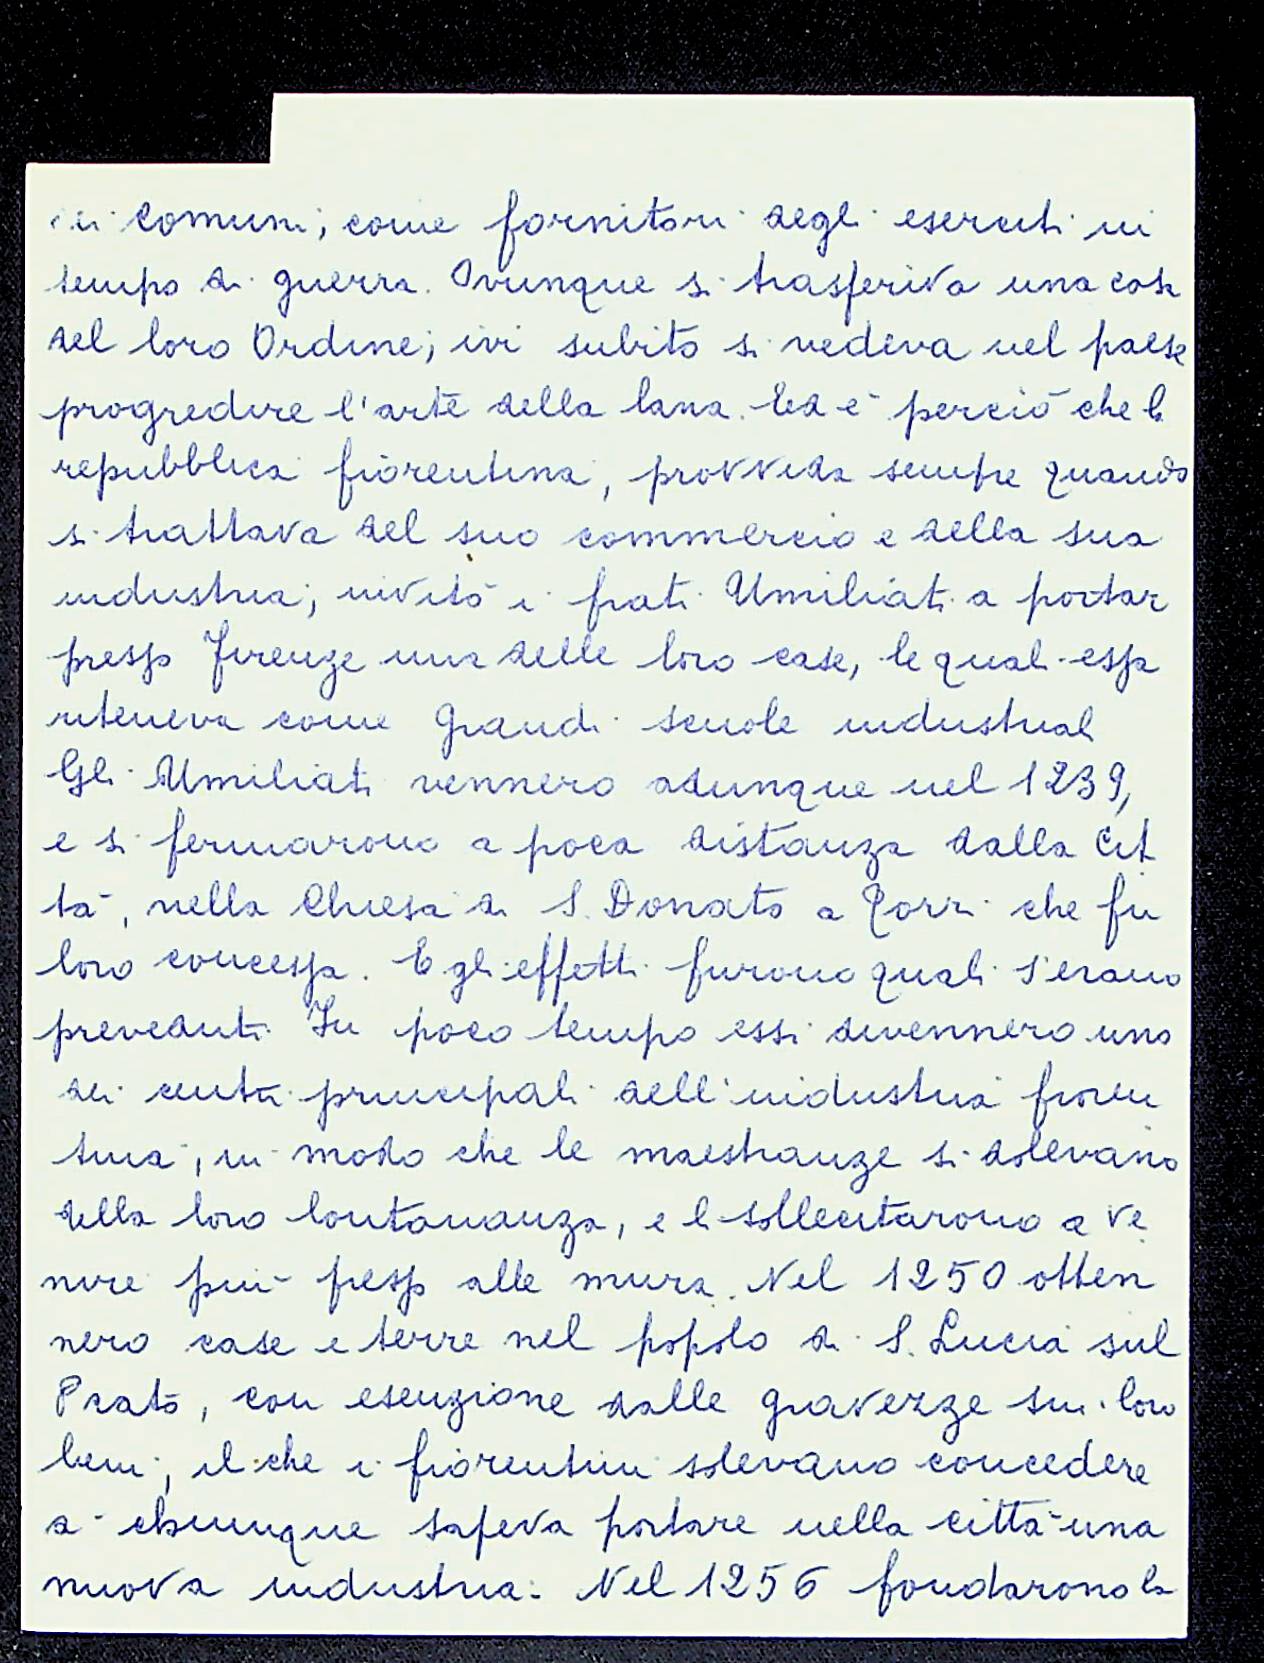 dei comuni, come fornitori degli eserciti in
tempo di guerra. Ovunque si trasferiva una casa
del loro Ordine, ivi subito si vedeva nel paese
progredire l'arte della lana. Ed è perciò che la
repubblica fiorentina, provvida sempre quando
si trattava del suo commercio e della sua
industria, invitò i frati Umiliati a portar
presso Firenze una delle loro case, le quali essa
riteneva come grandi scuole industriali
Gli Umiliati vennero adunque nel 1239,
e si fermarono a poca distanza dalla cit
tà, nella Chiesa di S. Donato a Torri che fu
loro concessa. E gli effetti furono quali s'erano
preveduti. In poco tempo essi divennero uno
dei centri principali dell'industria fioren
tina, in modo che le maestranze si dolevano
della loro lontananza, e li sollecitarono a ve
nire più presso alle mura. Nel 1250 otten
nero case e terre nel popolo di S. Lucia sul
Prato, con esenzione dalle gravezze sui loro
beni, il che i fiorentini solevano concedere
a chiunque sapeva portare nella città una
nuova industria. Nel 1256 fondarono la